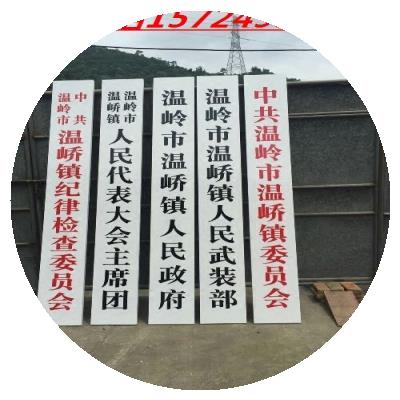 中共
温岭市
温峤镇纪律检查委员会
温岭市
温峤镇
人民代表大会主席团
温岭市温峤镇人民政府
温岭市温峤镇人民武装部
中共温岭市温峤镇委员会